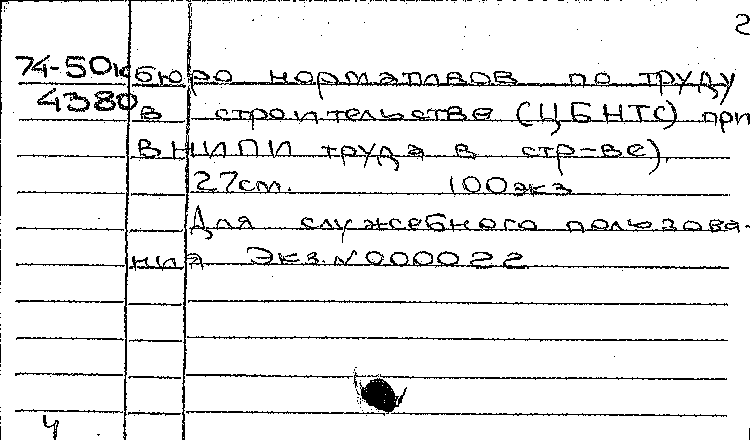 2
74-50к бюро нормативов по труду
4380 в строительстве (ЦБНТС) при
ВНИПИ труда в стр-ве).
27см. 100экз
Для служебного пользова-
ния Экз.№000022
4